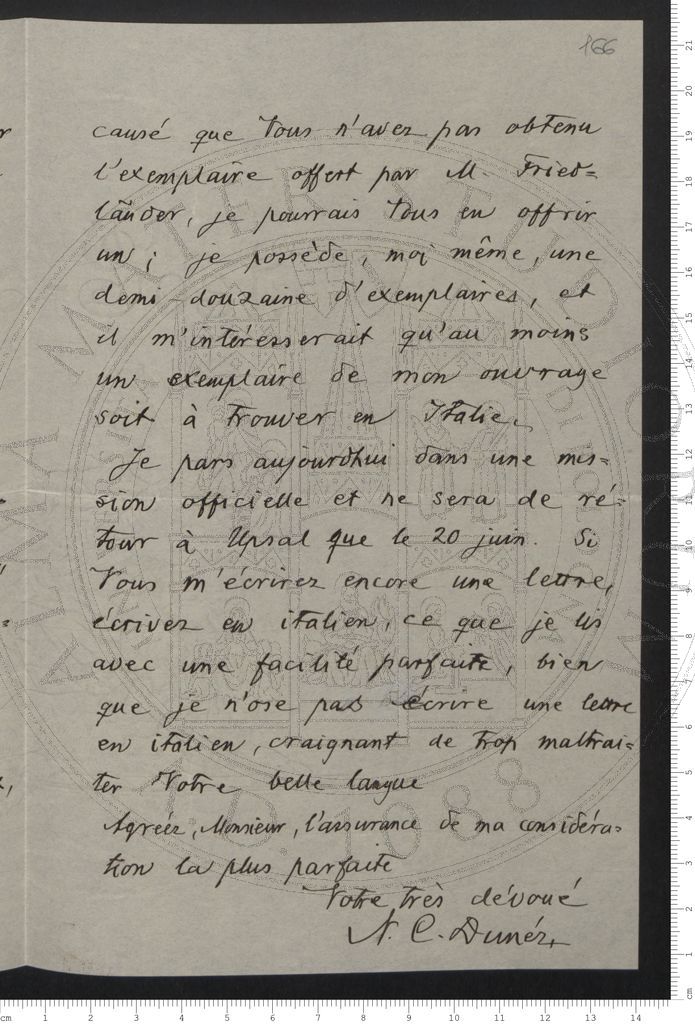 166
causé que Vous n'avez pas obtenu
l'exemplaire offert par M. Fried=
länder, je pourrais Vous en offrir
un; je possède, moi même, une
demi-douzaine d'exemplaires, et
il m'intéresserait qu'au moins
un exemplaire de mon ouvrage
soit à trouver en Italie.
Je pars aujourdhui dans une mis=
sion officielle et ne sera de ré=
tour à Upsal que le 20 juin. Si
Vous m'écrirez encore une lettre,
écrivez en italien, ce que je lis
avec une facilité parfaite, bien
que je n'ose pas écrire une lettre
en italien, craignant de trop maltrai=
ter Votre belle langue
Agréez, Monsieur, l'assurance de ma considéra=
tion la plus parfaite
Votre très dévoué
N. C. Dunér
ALMA MATER STUDIORUM
A.D. 1088